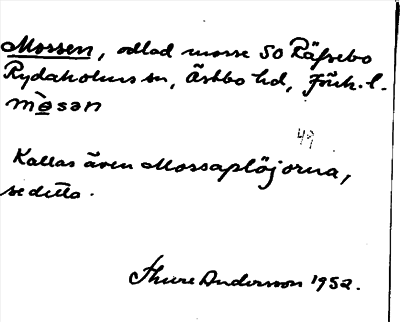 Mossen, odlad mosse SO Räfsebo
Rydaholms sn, Östbo hd, Jönk. l.
mòsən
49
Kallas även Mossaplöjorna,
se detta.
Thure Andersson 1952.